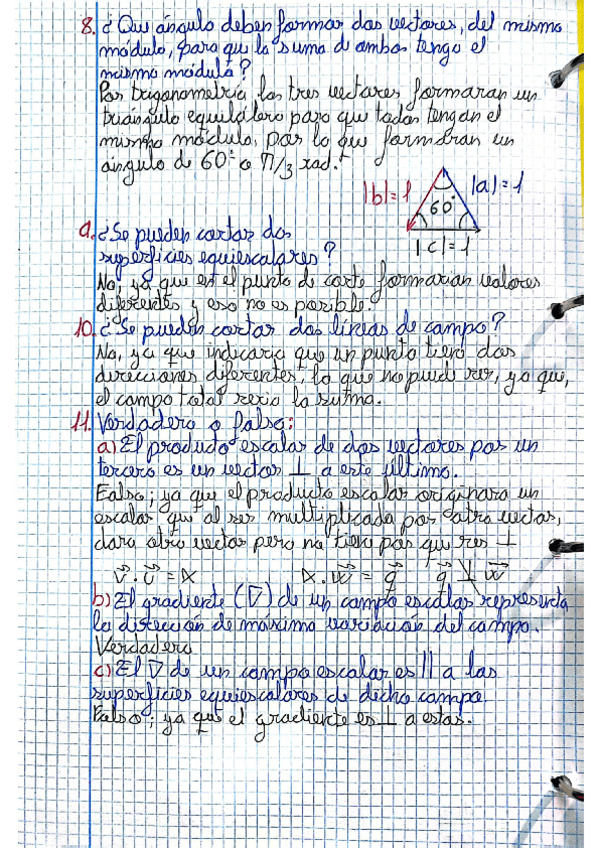 8. ¿Que ángulo deben formar dos vectores, del mismo
módulo, para que la suma de ambos tenga el
mismo módulo?
Por trigonometría, los tres vectores formaran un
triángulo equilátero para que todos tengan el
mismo módulo, por lo que formaran un
ángulo de 60° o π/3 rad.
|b|=1
|a|=1
60°
|c|=1
9. ¿Se pueden cortar dos
superficies equiescalares?
No, ya que en el punto de corte formarian valores
diferentes y eso no es posible.
10. ¿Se pueden cortar dos líneas de campo?
No, ya que indicaria que un punto tiene dos
direcciones diferentes, lo que no puede ser, ya que,
el campo total seria la suma.
11. Verdadero o falso:
a) El producto escalar de dos vectores por un
tercero es un vector ⊥ a este último.
Falso; ya que el producto escalar originara un
escalar que al ser multiplicado por otro vector,
dara otro vector pero no tiene por que ser ⊥
v⃗ · u⃗ = α α · w⃗ = q⃗ q⃗ ⊥̸ w⃗
b) El gradiente (∇) de un campo escalar representa
la dirección de máxima variación del campo.
Verdadero
c) El ∇ de un campo escalar es || a las
superficies equiescalares de dicho campo.
Falso; ya que el gradiente es ⊥ a estas.